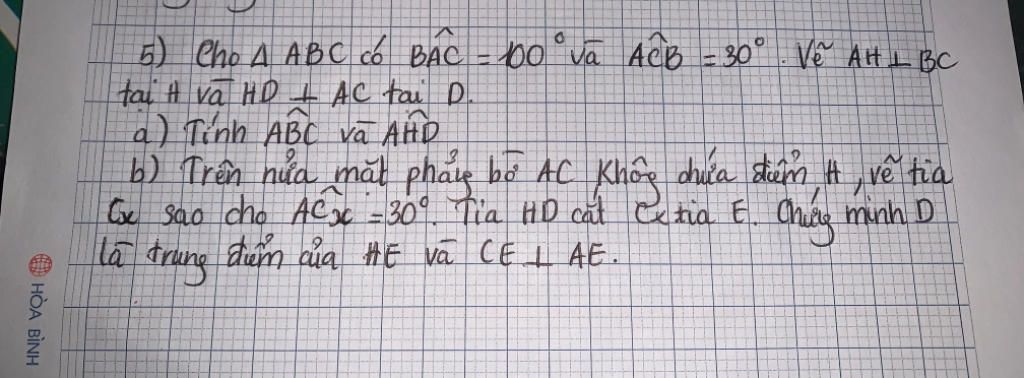 5) Cho Δ ABC có BÂC = 100° và AĈB = 30°. Vẽ AH ⊥ BC
tại H và HD ⊥ AC tại D.
a) Tính AB̂C và AĤD
b) Trên nửa mặt phẳng bờ AC không chứa điểm H, vẽ tia
Cx sao cho AĈx = 30°. Tia HD cắt Cx tia E. Chứng minh D
là trung điểm của HE và CE ⊥ AE.
HÒA BÌNH